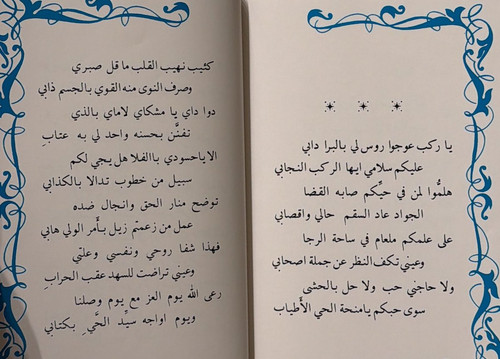 يا ركب عوجوا روس لي بالبرا دابي
عليكم سلامي ايها الركب النجابي
هلمُّوا لمن في حيِّكم صابه القضا
الجواد عاد السقم حالي واقصابي
على علمكم ملعام في ساحة الرجا
وعيني تكف النظر عن جملة اصحابي
ولا حاجني حب ولا حل بالحشى
سوى حبكم يامنحة الحي الأطياب
كئيب نهيب القلب ما قل صبري
وصرف النوى منه القوي بالجسم ذابي
دوا داي يا مشكاي لاماي بالذي
تفنَّن بحسنه واحد لي به عتابِ
الا ياحسودي باالفلا هل يجي لكم
سبيل من خطوب تدالا بالكذابي
توضح منار الحق وانجال ضده
عمل من زعمتم زيل بأمر الولي هابي
فهذا شفا روحي ونفسي وعلتي
وعيني تراضت للسهد عقب الحرابِ
رعى الله يوم العز مع يوم وصلنا
ويوم اواجه سيِّد الحَّيِ بكتابي